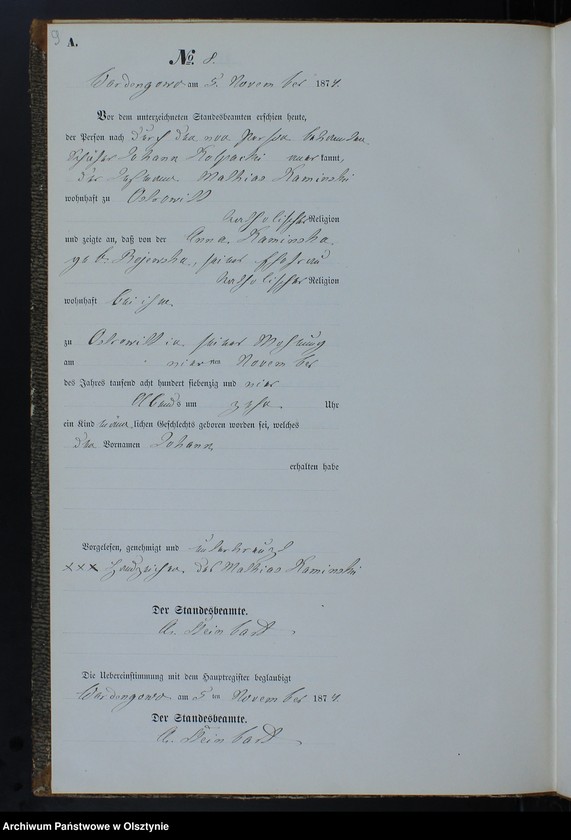 9
A.
No. 8.
Wardengowo am 5. November 1874.
Vor dem unterzeichneten Standesbeamten erschien heute,
der Person nach durch den von Person bekannten
Johann Kolpacki anerkannt,
der Mathias Kaminski
wohnhaft zu Ostrowitt
katholischer Religion
und zeigte an, daß von der Anna Kaminska
geb. Rojewska, seiner Ehefrau
katholischer Religion
wohnhaft bei ihm
zu Ostrowitt in seiner Wohnung
am vierten November
des Jahres tausend acht hundert siebenzig und vier
Abends um zehn Uhr
ein Kind männlichen Geschlechts geboren worden sei, welches
den Vornamen Johann
erhalten habe
Vorgelesen, genehmigt und unterkreuzt
××× Handzeichen des Mathias Kaminski
Der Standesbeamte.
Steinbart
Die Uebereinstimmung mit dem Hauptregister beglaubigt
Wardengowo am 5ten November 1874.
Der Standesbeamte.
Steinbart
Archiwum Państwowe w Olsztynie